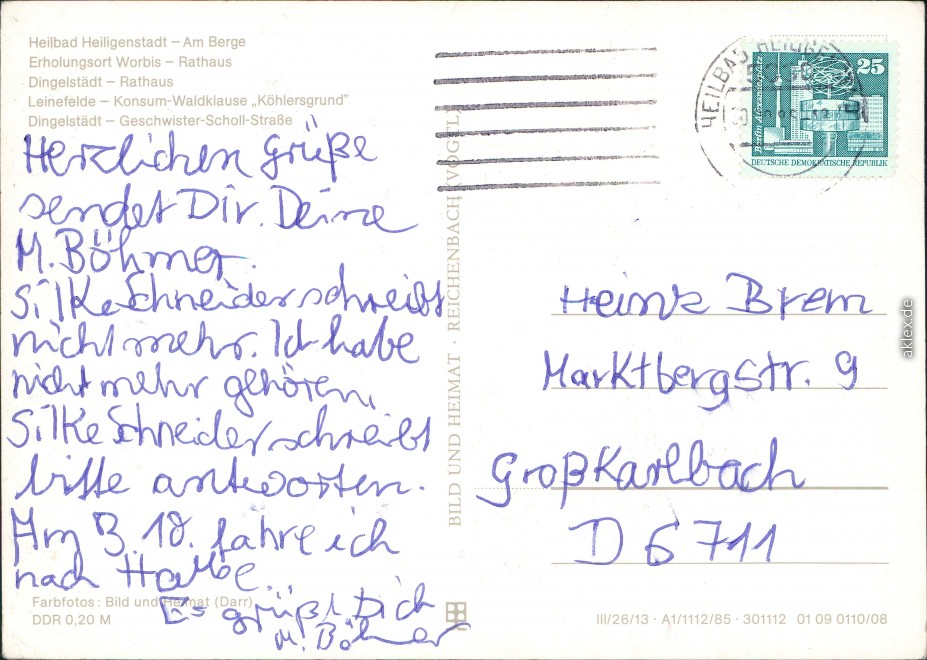 Heilbad Heiligenstadt – Am Berge
Erholungsort Worbis – Rathaus
Dingelstädt – Rathaus
Leinefelde – Konsum-Waldklause „Köhlersgrund"
Dingelstädt – Geschwister-Scholl-Straße
Herzlichen Grüße
sendet Dir. Deine
M. Böhmer.
Silke Schneider schreibt
nicht mehr. Ich habe
nicht mehr gehören,
Silke Schneider schreibt
bitte antworten.
Am 3. 10. fahre ich
nach Halle.
Es grüßt Dich
M. Böhmer
Farbfotos: Bild und Heimat (Darr)
DDR 0,20 M
BILD UND HEIMAT · REICHENBACH (VOGTL)
HEILBAD HEILIGE
25
Berlin, Alexanderplatz
DEUTSCHE DEMOKRATISCHE REPUBLIK
Heinz Brem
Marktbergstr. 9
Großkarlbach
D 6711
III/26/13 · A1/1112/85 · 301112 01 09 0110/08
aklex.de